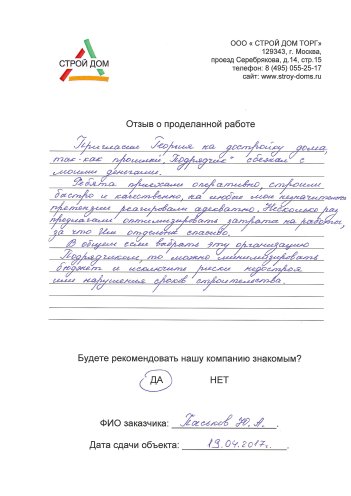 СТРОЙ ДОМ
ООО « СТРОЙ ДОМ ТОРГ»
129343, г. Москва,
проезд Серебрякова, д.14, стр.15
телефон: 8 (495) 055-25-17
сайт: www.stroy-doms.ru
Отзыв о проделанной работе
Пригласили Георгия на достройку дома,
так-как прошлый „Подрядчик" сбежал с
моими деньгами.
Ребята приехали оперативно, строили
быстро и качественно, на любые мои
претензии реагировали адекватно. Несколько раз
предлагали оптимизировать затраты на работы,
за что Им отдельное спасибо.
В общем если выбрать эту организацию
Подрядчиком, то можно минимизировать
бюджет и исключить риски недостроя
или нарушения сроков строительства.
Будете рекомендовать нашу компанию знакомым?
ДА НЕТ
ФИО заказчика: Паськов Ю.А.
Дата сдачи объекта: 19.04.2017г.